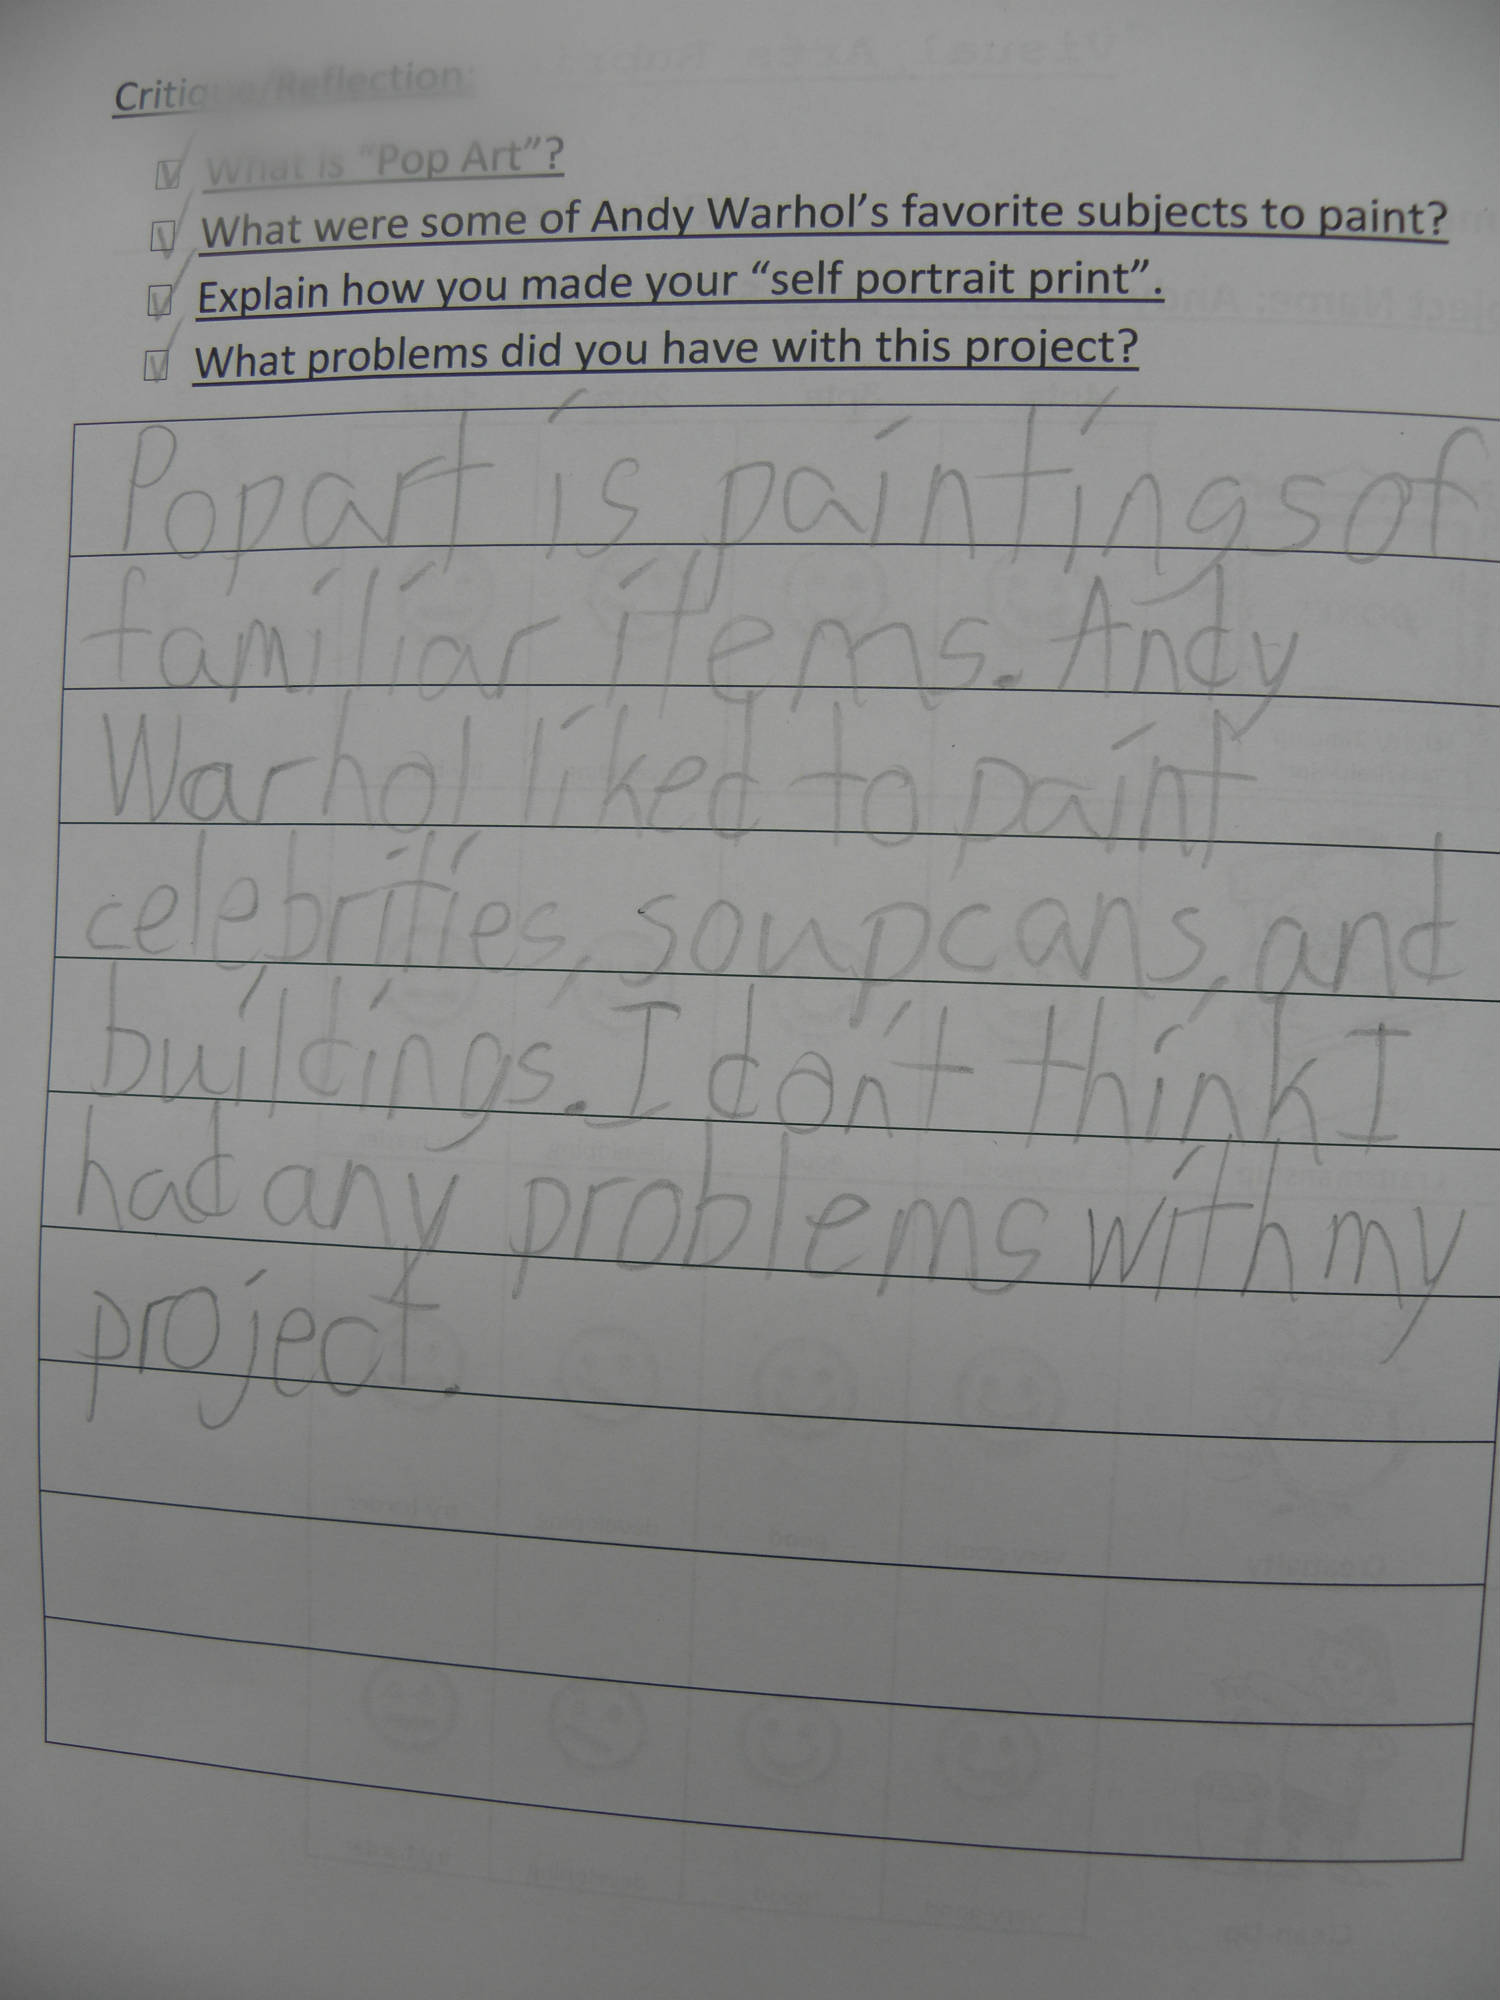 Critique/Reflection:
What is “Pop Art”?
What were some of Andy Warhol’s favorite subjects to paint?
Explain how you made your “self portrait print”.
What problems did you have with this project?
Pop art is paintings of
familiar items. Andy
Warhol liked to paint
celebrities, soup cans, and
buildings. I don't think I
had any problems with my
project.